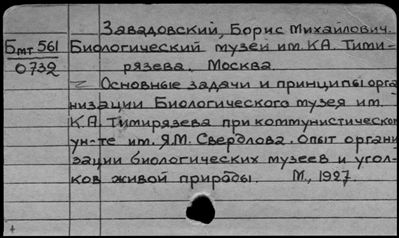 Завадовский, Борис Михайлович.
Бмт 561 Биологический музей им. К.А. Тими-
0732 рязева. Москва.
Основные задачи и принципы орга
низации Биологического музея им.
К.А. Тимирязева при коммунистическом
ун-те им. Я.М. Свердлова. Опыт органи
зации биологических музеев и угол-
ков живой природы. М., 1927.